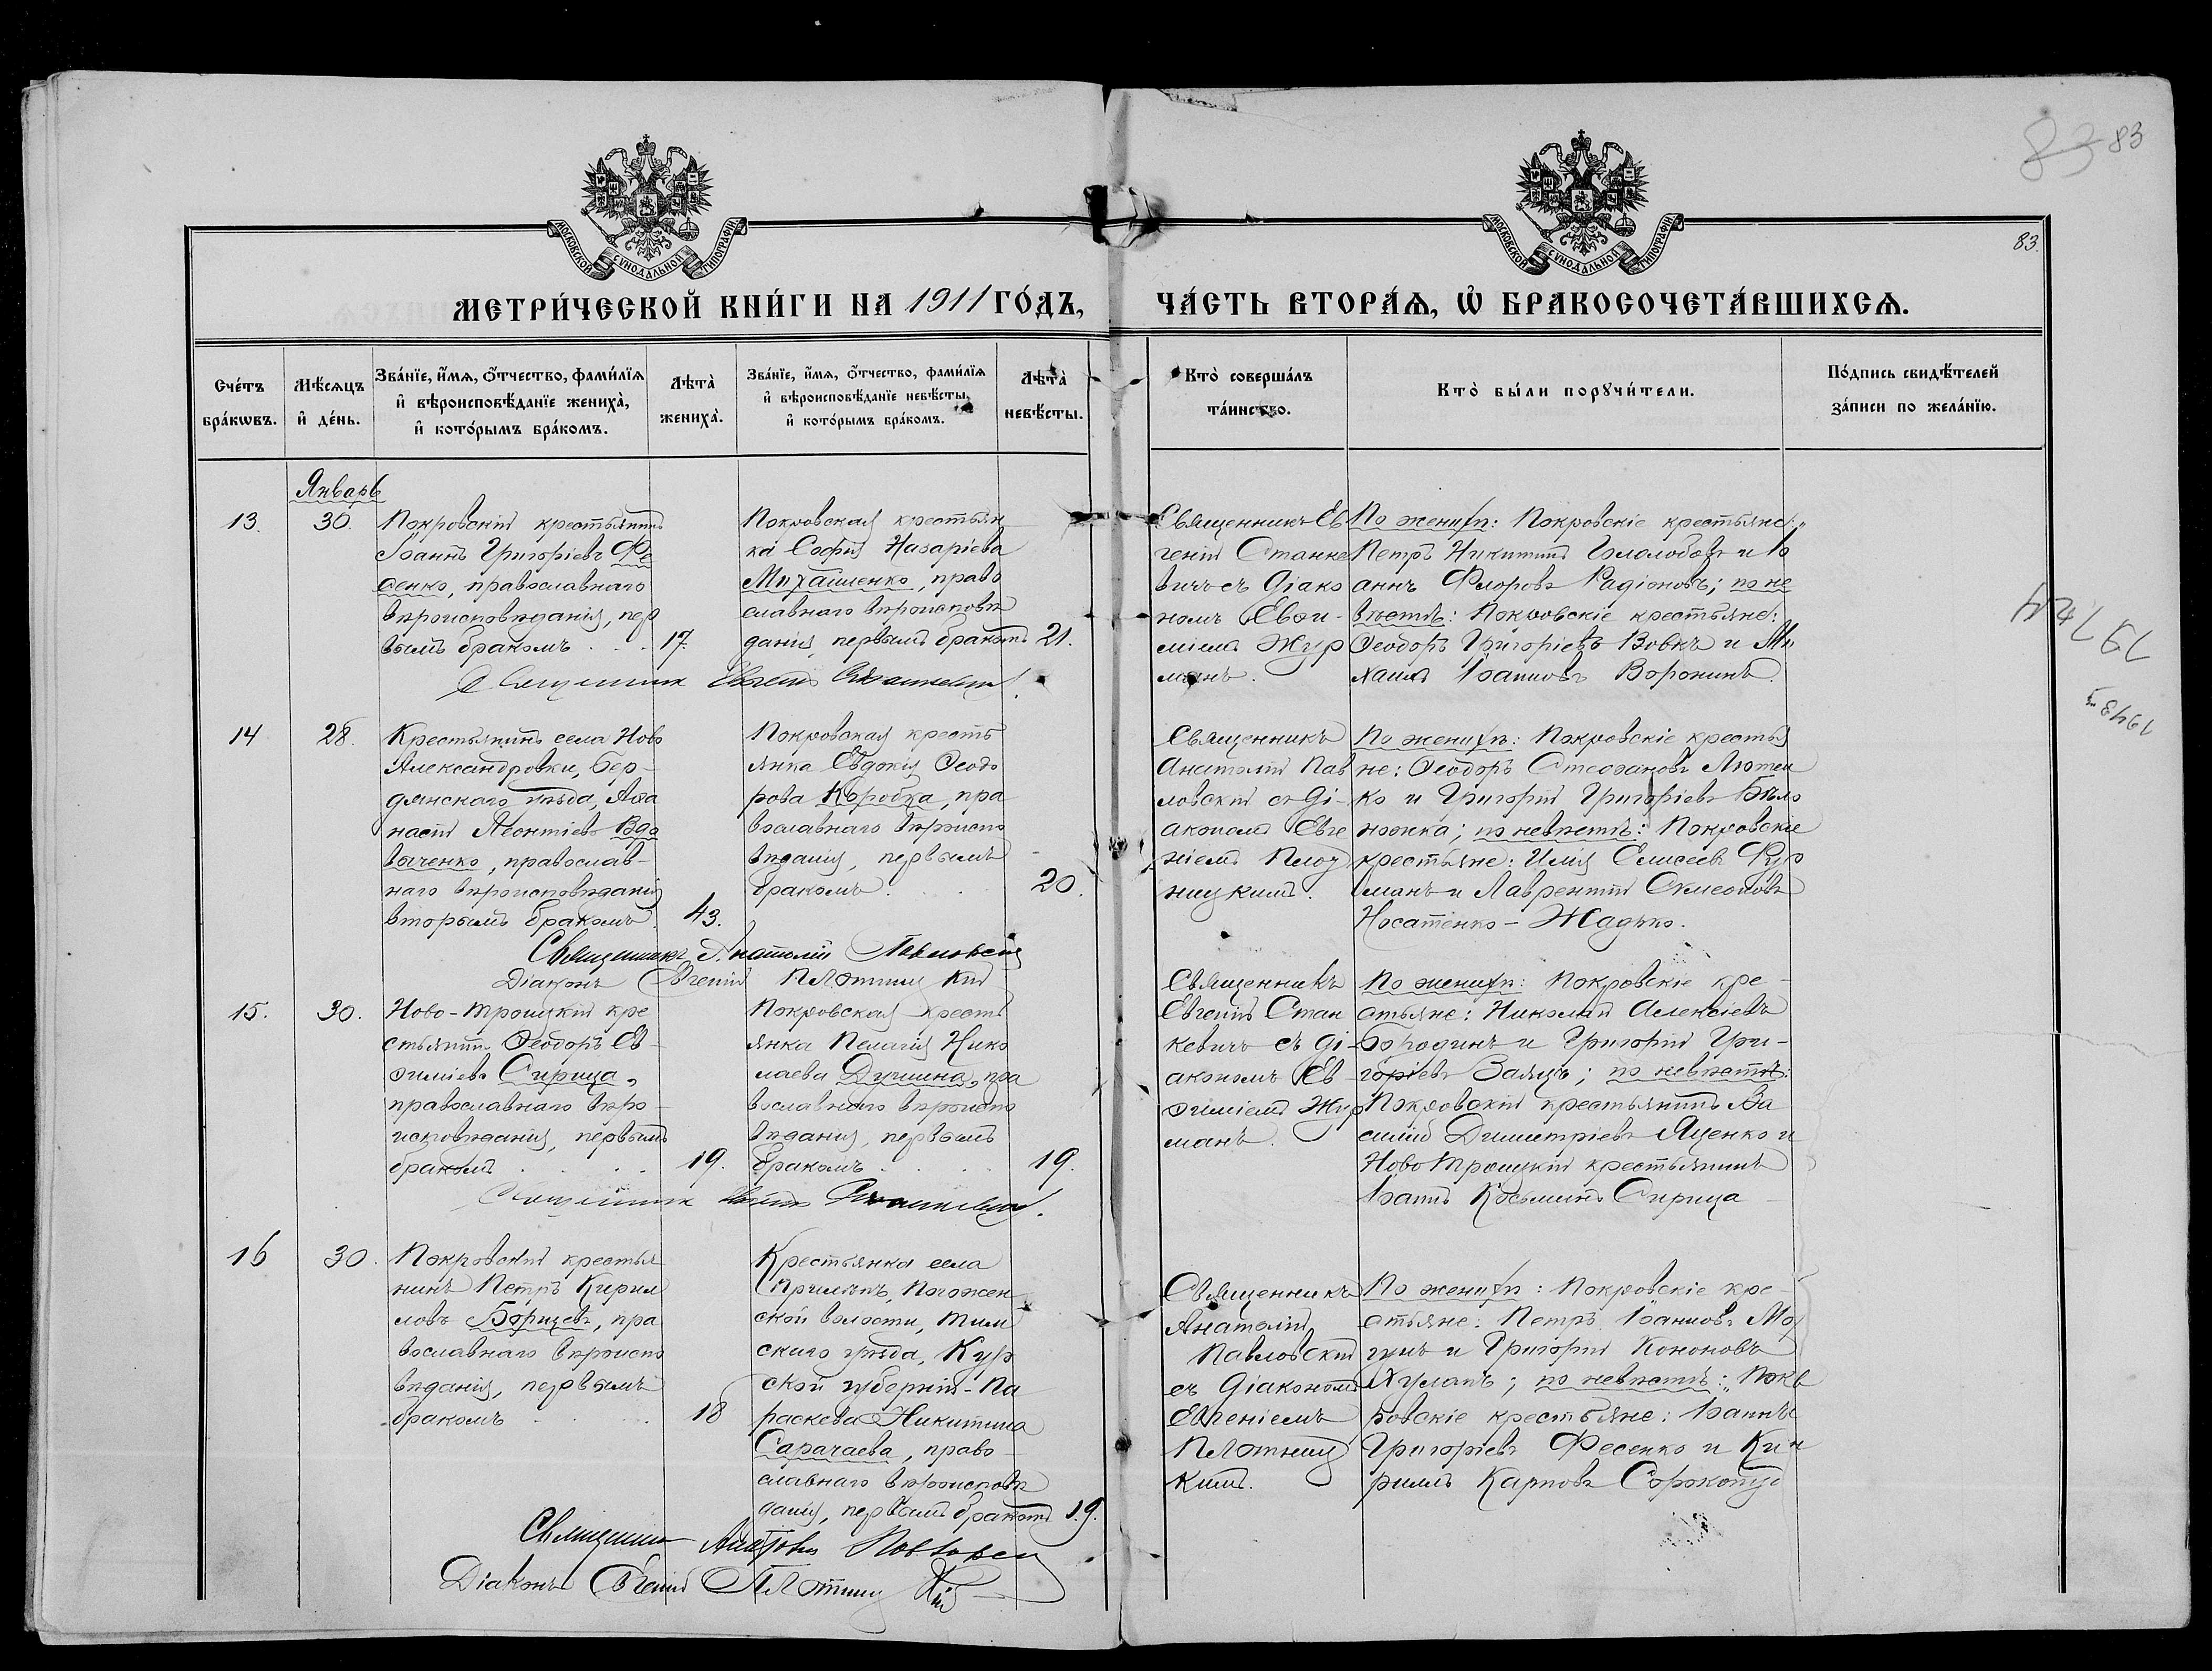 83 83
83.
МОСКОВСКОЙ СѴНОДАЛЬНОЙ ТИПОГРАФІИ
МОСКОВСКОЙ СѴНОДАЛЬНОЙ ТИПОГРАФІИ
МЕТРИ́ЧЕСКОЙ КНИ́ГИ НА 1911 ГО́ДЪ,
ЧА́СТЬ ВТОРА́Ѧ, Ѽ БРАКОСОЧЕТА́ВШИХСѦ.
Сче́тъ
бра́кѡвъ.
Мѣ́сѧцъ
и҆ де́нь.
Зва́нїе, и҆́мѧ, ѻ҆́тчество, фами́лїѧ
и҆ вѣроисповѣ́данїе жениха̀,
и҆ кото́рымъ бра́комъ.
Лѣта̀
жениха̀.
Зва́нїе, и҆́мѧ, ѻ҆́тчество, фами́лїѧ
и҆ вѣроисповѣ́данїе невѣ́сты,
и҆ кото́рымъ бра́комъ.
Лѣта̀
невѣ́сты.
Кто̀ соверша́лъ
та́инство.
Кто̀ бы́ли порꙋчи́тели.
По́дпись свидѣ́телей
за́писи по жела́нїю.
Январь
13.
30.
Покровскій крестьянинъ
Іоаннъ Григоріевъ Фе
сенко, православнаго
вѣроисповѣданія, пер
вымъ бракомъ
17.
Покровская крестьян
ка Софія Назаріева
Михайленко, право
славнаго вѣроисповѣ
данія, первымъ бракомъ
21.
Священникъ Ев
геній Станке
вичъ съ діако
номъ Евѳи-
міемъ Жур
манъ.
По женихѣ: Покровскіе крестьяне:
Петръ Никитинъ Гололобовъ и Іо
аннъ Флоровъ Радіоновъ; по не
вѣстѣ: Покровскіе крестьяне:
Ѳеодоръ Григоріевъ Вовкъ и Ми
хаилъ Іоанновъ Воронинъ.
Священникъ Евгеній Станкевичъ.
14
28.
Крестьянинъ села Ново
Александровки, Бер-
дянскаго уѣзда, Аѳа
насій Леонтіевъ Вдо
выченко, православ-
наго вѣроисповѣданія
вторымъ бракомъ.
43.
Покровская кресть
янка Евдокія Ѳеодо
рова Коробка, пра
вославнаго вѣроиспо
вѣданія, первымъ
бракомъ.
20.
Священникъ
Анатолій Пав
ловскій съ ді-
акономъ Евге
ніемъ Плот
ницкимъ.
По женихѣ: Покровскіе крестья
не: Ѳеодоръ Стефановъ Лютен
ко и Григорій Григоріевъ Бѣло
ножка; по невѣстѣ: Покровскіе
крестьяне: Илія Елисеевъ Фур
манъ и Лаврентій Симеоновъ
Носатенко-Жадько.
Священникъ Анатолій Павловскій
Діаконъ Евгеній Плотницкій
15.
30.
Ново-Троицкій кре
стьянинъ Ѳеодоръ Ев-
ѳиміевъ Сирица,
православнаго вѣро-
исповѣданія, первымъ
бракомъ
19.
Покровская кресть
янка Пелагія Нико
лаева Душина, пра
вославнаго вѣроиспо
вѣданія, первымъ
бракомъ
19.
Священникъ
Евгеній Стан
кевичъ съ ді-
акономъ Ев-
ѳиміемъ Жур
манъ.
По женихѣ: Покровскіе кре-
стьяне: Николай Алексіевъ
Бородинъ и Григорій Гри-
горіевъ Заяцъ; по невѣстѣ:
Покровскій крестьянинъ Ва
силій Димитріевъ Яценко и
НовоТроицкій крестьянинъ
Іоаннъ Косьминъ Сирица
Священникъ Евгеній Станкевичъ.
16
30.
Покровскій крестья
нинъ Петръ Кирил
ловъ Борщевъ, пра
вославнаго вѣроиспо
вѣданія, первымъ
бракомъ
18
Крестьянка села
Погожен
ской волости, Тим
скаго уѣзда, Кур
ской губерніи - Па
раскева Никитина
Сарачаева, право
славнаго вѣроисповѣ
данія, первымъ бракомъ
19.
Священникъ
Анатолій
Павловскій
съ діакономъ
Евгеніемъ
Плотниц
кимъ.
По женихѣ: Покровскіе кре-
стьяне: Петръ Іоанновъ Мол
гунъ и Григорій Кононовъ
Хуланъ; по невѣстѣ: Пок
ровскіе крестьяне: Іоаннъ
Григоріевъ Фесенко и Ки
риллъ Карповъ Сорокопуд
Священникъ Анатолій Павловскій
Діаконъ Евгеній Плотницкій